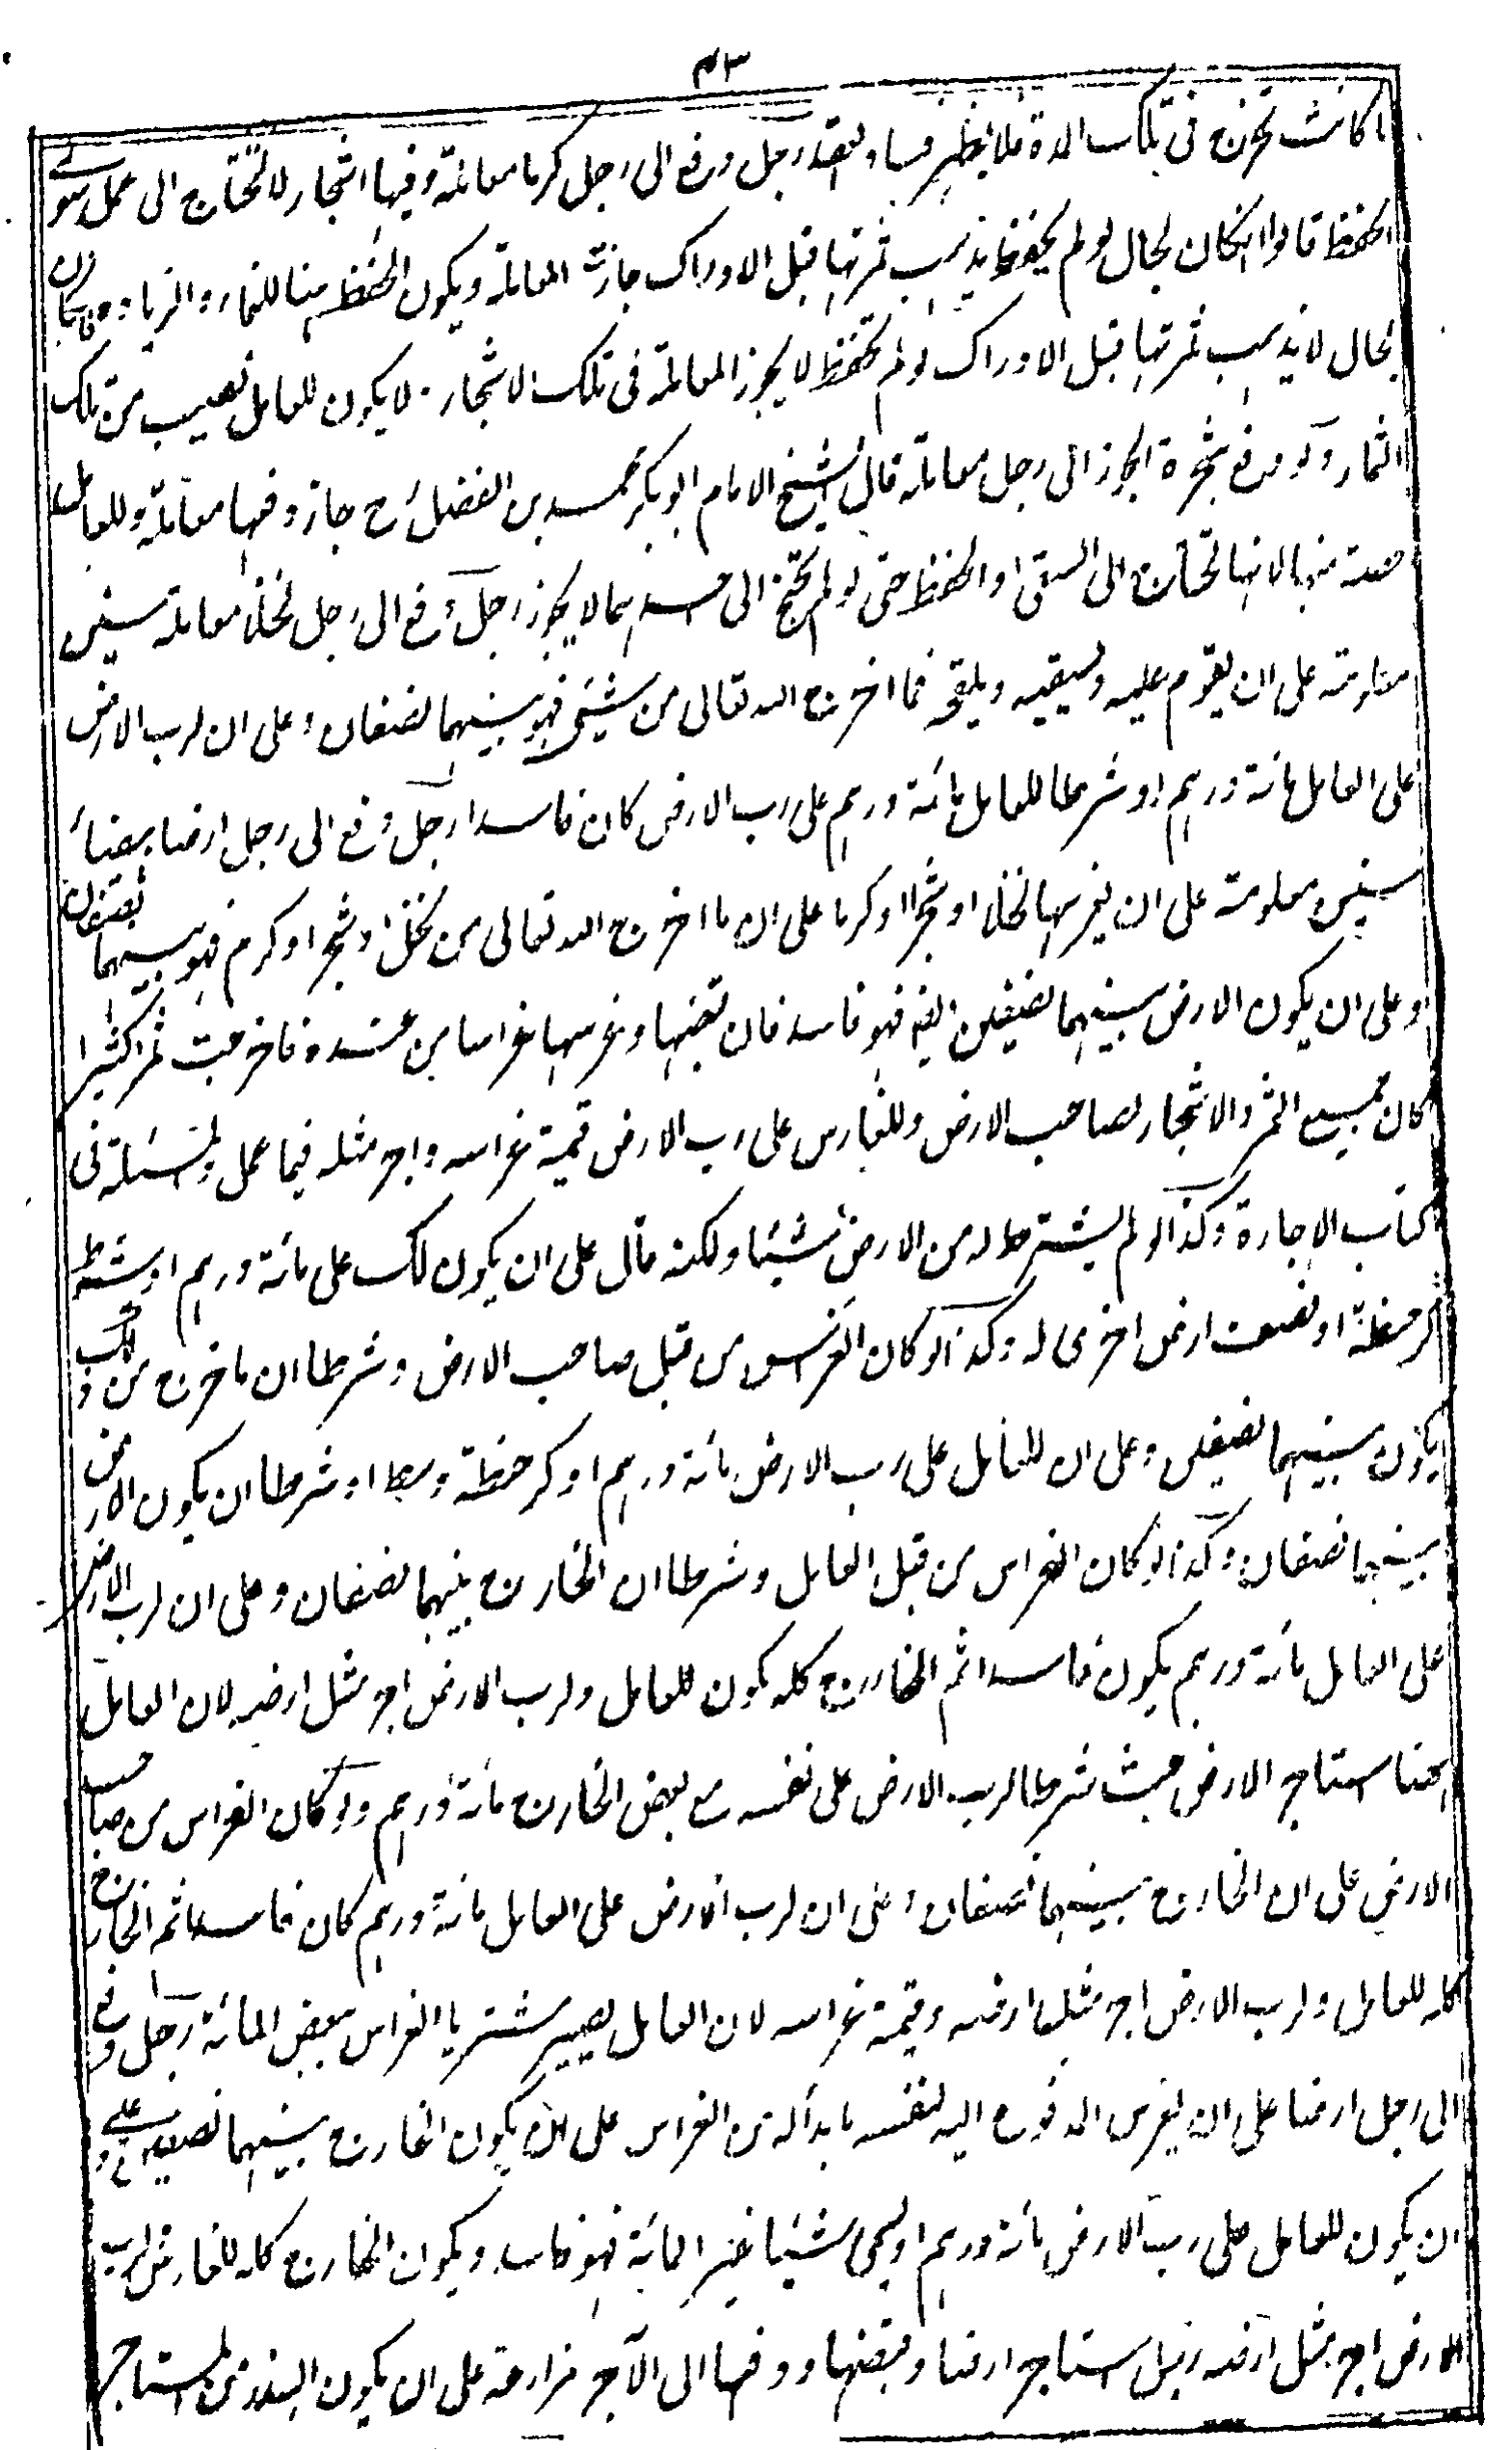 ٤٣
ما كانت تخرج فى تلك المدة فلا يظهر فساد العقد رجل دفع الى رجل كرما معاملة وفيها اشجار لا تحتاج الى عمل سوى
الحفظ قالوا انكان بحال لو لم يحفظ يذهب ثمرتها قبل الادراك جازت المعاملة ويكون الحفظ ههنا للثمار والزيادة وانكان
بحال لا يذهب ثمرتها قبل الادراك لو لم تحفظ لا يجوز المعاملة فى تلك الاشجار ولا يكون للعامل نصيب من تلك
الثمار ولو دفع شجرة الجوز الى رجل معاملة قال الشيخ الامام ابو بكر محمد بن الفضل رح جاز دفعها معاملة وللعامل
حصة منها لانها تحتاج الى السقى او الحفظ حتى لو لم تحتج الى احدهما لا يجوز رجل دفع الى رجل نخلا معاملة سنين
معلومة على ان يقوم عليه ويسقيه ويلقحه فما اخرج الله تعالى من شيئ فهو بينهما نصفان وعلى ان لرب الارض
على العامل مائة درهم او شرطا للعامل مائة درهم على رب الارض كان فاسدا رجل دفع الى رجل ارضا بيضاء
سنين معلومة على ان يغرسها نخلا او شجرا او كرما على ان ما اخرج الله تعالى من نخل او شجر او كرم فهو بينهما نصفان
وعلى ان يكون الارض بينهما نصفين ايضا فهو فاسد فان قبضها وغرسها غراسا من عنده فاخرجت ثمرا كثيرا
كان جميع الثمر والاشجار لصاحب الارض وللغارس على رب الارض قيمة غراسه واجر مثله فيما عمل والمسئلة فى
كتاب الاجارة وكذا لو لم يشترط له من الارض شيئا ولكنه قال على ان يكون لك على مائة درهم او شرط
كر حنطة او نصف ارض اخرى له وكذا لو كان الغرس من قبل صاحب الارض وشرطا ان ما خرج من ذلك
يكون بينهما نصفين وعلى ان للعامل على رب الارض مائة درهم او كر حنطة وسط او شرطا ان يكون الارض
بينهما نصفان وكذا لو كان الغراس من قبل العامل وشرطا ان الخارج بينهما نصفان وعلى ان لرب الارض
على العامل مائة درهم يكون فاسدا ثم الخارج كله يكون للعامل ولرب الارض اجر مثل ارضه لان العامل
ههنا استاجر الارض حيث شرطا لرب الارض على نفسه مع بعض الخارج مائة درهم ولو كان الغراس من صاحب
الارض على ان الخارج بينهما نصفان وعلى ان لرب الارض على العامل مائة درهم كان فاسدا ثم الخارج
كله للعامل ولرب الارض اجر مثل ارضه وقيمة غراسه لان العامل يصير مشتريا الغراس ببعض المائة رجل دفع
الى رجل ارضا على ان يغرس المدفوع اليه لنفسه ما بدا له من الغراس على ان يكون الخارج بينهما نصفين وعلى
ان يكون للعامل على رب الارض مائة درهم او سمى شيئا غير المائة فهو فاسد ويكون الخارج كله للغارس ولرب
الارض اجر مثل ارضه رجل استاجر ارضا وقبضها ودفعها الى الآجر مزارعة على ان يكون البذر من المستاجر